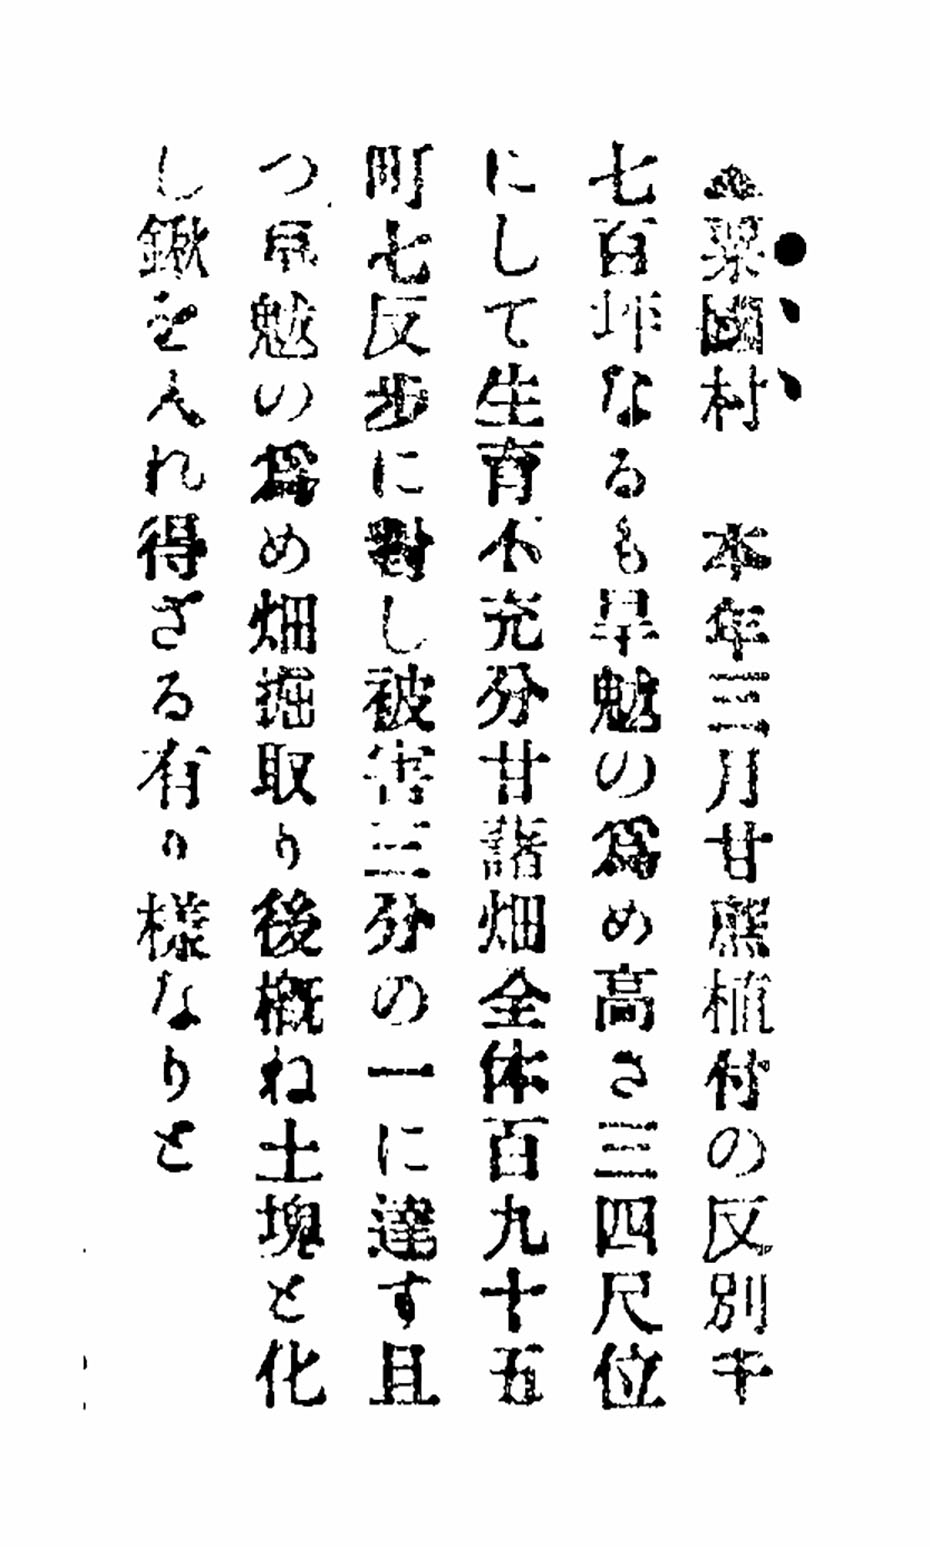 粟國村　本年三月甘蔗植付の反別千
七百坪なるも旱魃の爲め高さ三四尺位
にして生育不充分甘藷畑全体百九十五
町七反步に對し被害三分の一に達す且
つ旱魃の爲め畑掘取り後概ね土塊と化
し鍬を入れ得ざる有り樣なりと